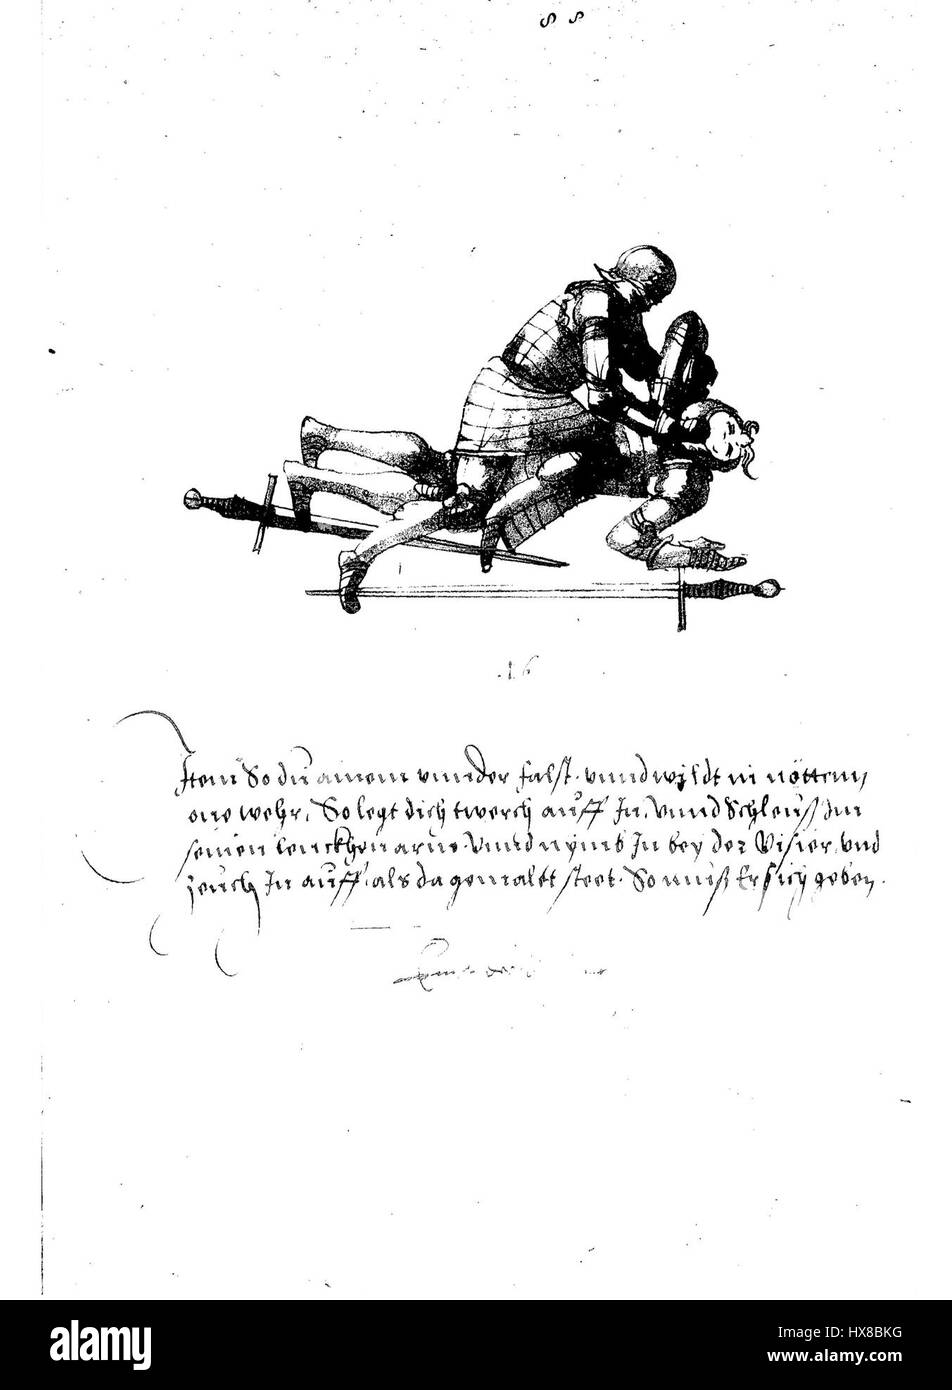 16
Item So du ainem vnnder falst. vnnd wyldt in nötten,
one wehr, So legt dich twerch auff In, vnnd Schleuß Im
seinen lenckhen arm. vnnd nymb In bey der Visier, vnd
zeuch In auff, als da gemaltt steet. So muß Er sich geben.
alamy
Image ID: HX8BKG
www.alamy.com